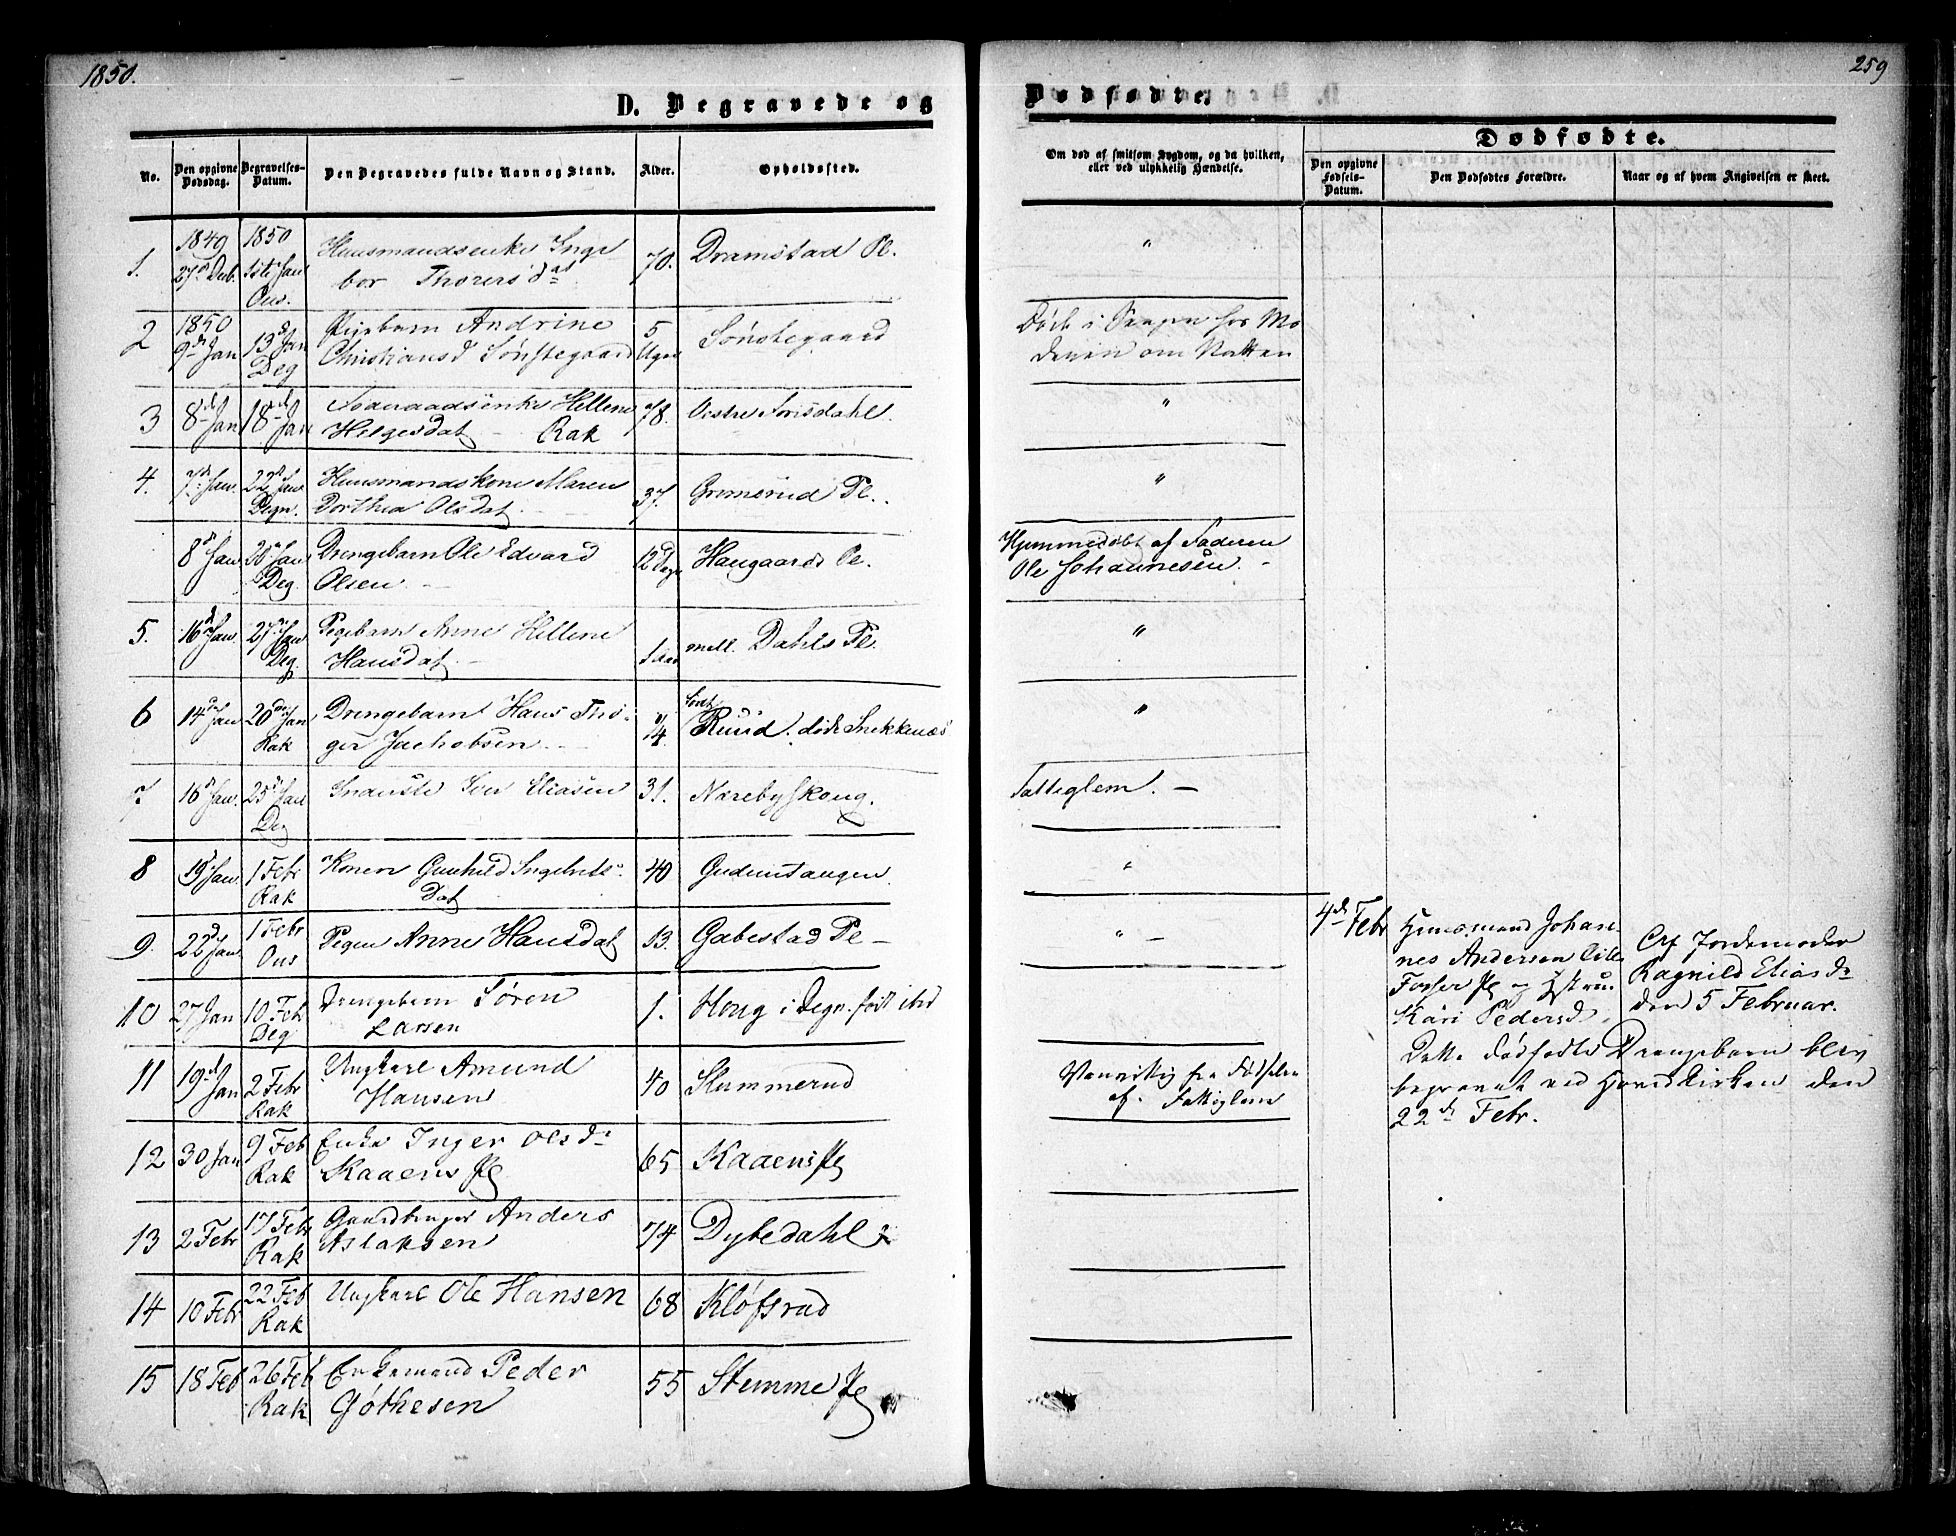 1850.
259
D. Begravede og
Dødfødte.
No.
Den opgivne Dødsdag.
Begravelses-Datum.
Den Begravedes fulde Navn og Stand.
Alder.
Opholdssted.
Om død af smitsom Sygdom, og da hvilken,
eller ved ulykkelig Hændelse.
Dødfødte.
Den opgivne Fødsels-Datum.
Den Dødfødtes Forældre.
Naar og af hvem Angivelsen er skeet.
1849 1850
1. 27 Dcb. 1ste Jan Ous.
Huusmandsenke Inge
bor Thorersdat
70. Dramstad Pl.
"
1850
2 9de Jan 13de Jan Deg
Pigebarn Andrine
Christiansd Sønstegaard
5 Uger
Sønstegaard
Død i Sengen hos Mo
deren om Natten
3 8de Jan 18de Jan
Hellene
Helgesdat - Rak
78. Vestre
"
4. 7de Jan. 22de Jan Degn.
Huusmandskone Maren
Dorthea Olsdat.
37. Gromsrud Pl.
"
8de Jan 20de Jan Deg.
Drengebarn Ole Edvard
Olsen -
12 Dage
Haugaards Pl.
Hjemmedøbt af Faderen
Ole Johannesen. -
5. 16de Jan. 27de Jan Deg.
Pigebarn Anne Hellene
Hansdat. -
1 Aar
mell. Dahls Pl.
"
6 14de Jan 20de Jan Rak
Drengebarn Hans Tho-
ger Jachobsen. -
født
Ruud. døde Snekkenæs
"
7. 16de Jan. 25de Jan Deg
Inderste Iver Eliasen
31. Narebyskoug.
Fattiglem. -
8 19de Jan. 1 Febr Rak
Konen Gunhild Ingebrets-
Dat
40 Gudimtangen
"
9. 22de Jan. 1 Febr Ous
Pigen Anne Hansdat
13. Gabestad Pl -
" -
10 27 Jan 10 Feb Deg
Drengebarn Søren
Larsen
1. Houg i Degn. født ibid
11 19de Jan 2 Febr Rak
Ungkarl Amund
Hansen
40 Slummerud
Vanvittig fra Fødselen
af. Fattiglem
12 30 Jan 9 Feb Rak
Enke Inger Olsd
Kaaens Plg
65 Kaaens Plg
13 2 Febr 17 Febr Rak
Gaardbruger Anders
Aslaksen
74 Dybedahl
14 10 Febr 22 Feb Rak
Ungkarl Ole Hansen
68 Kløfsrud
15 18 Feb 26 Feb Rak
Enkemand Peder
Gøthesen
55 Stemme Plg
4de Febr
Huusmand Johan
nes Andersen Lille
Fosser Plg og Hstru
Kari Pedersd.
Af Jordemoder
Ragnild Eliasd
den 5 Februar.
Dette dødfødte Drengebarn blev
begravet ved Hovedkirken den
22de Febr.